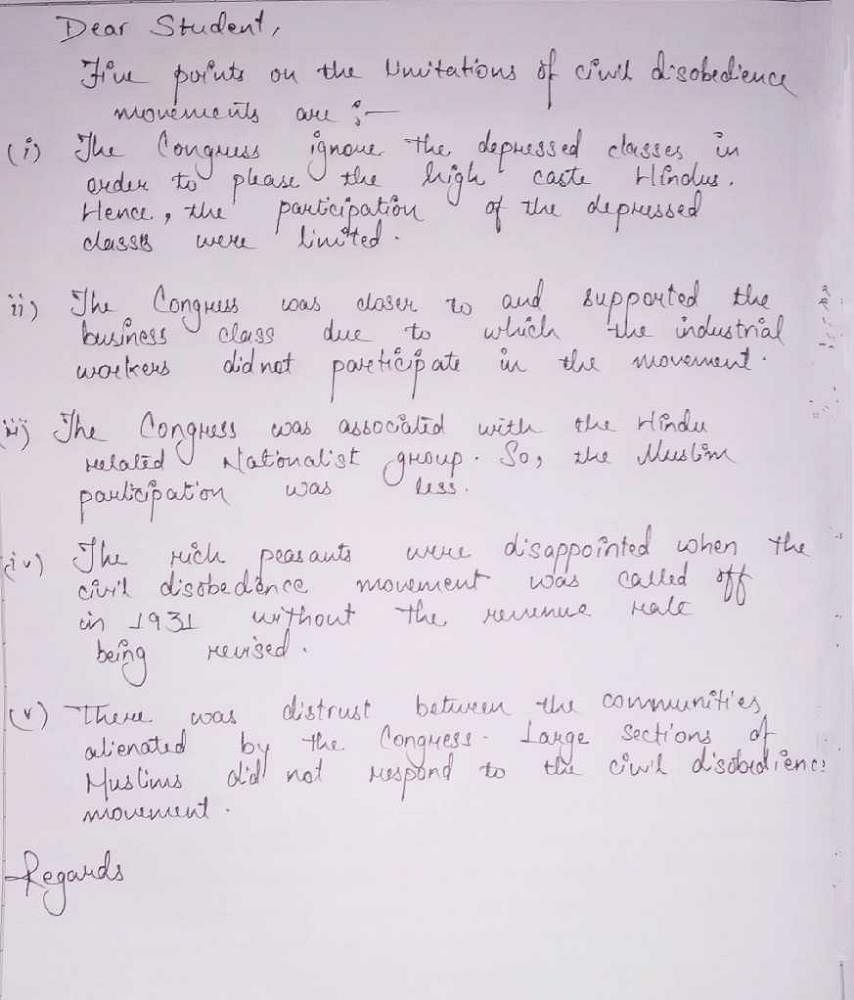 Dear Student,
Five points on the limitations of civil disobedience
movements are :-
(i) The Congress ignore the depressed classes in
order to please the high caste Hindus.
Hence, the participation of the depressed
classes were limited.
ii) The Congress was closer to and supported the
business class due to which the industrial
workers did not participate in the movement.
iii) The Congress was associated with the Hindu
related Nationalist group. So, the Muslim
participation was less.
(iv) The rich peasants were disappointed when the
civil disobedence movement was called off
in 1931 without the revenue rate
being revised.
(v) There was distrust between the communities
alienated by the Congress. Large sections of
Muslims did not respond to the civil disobedience
movement.
Regards